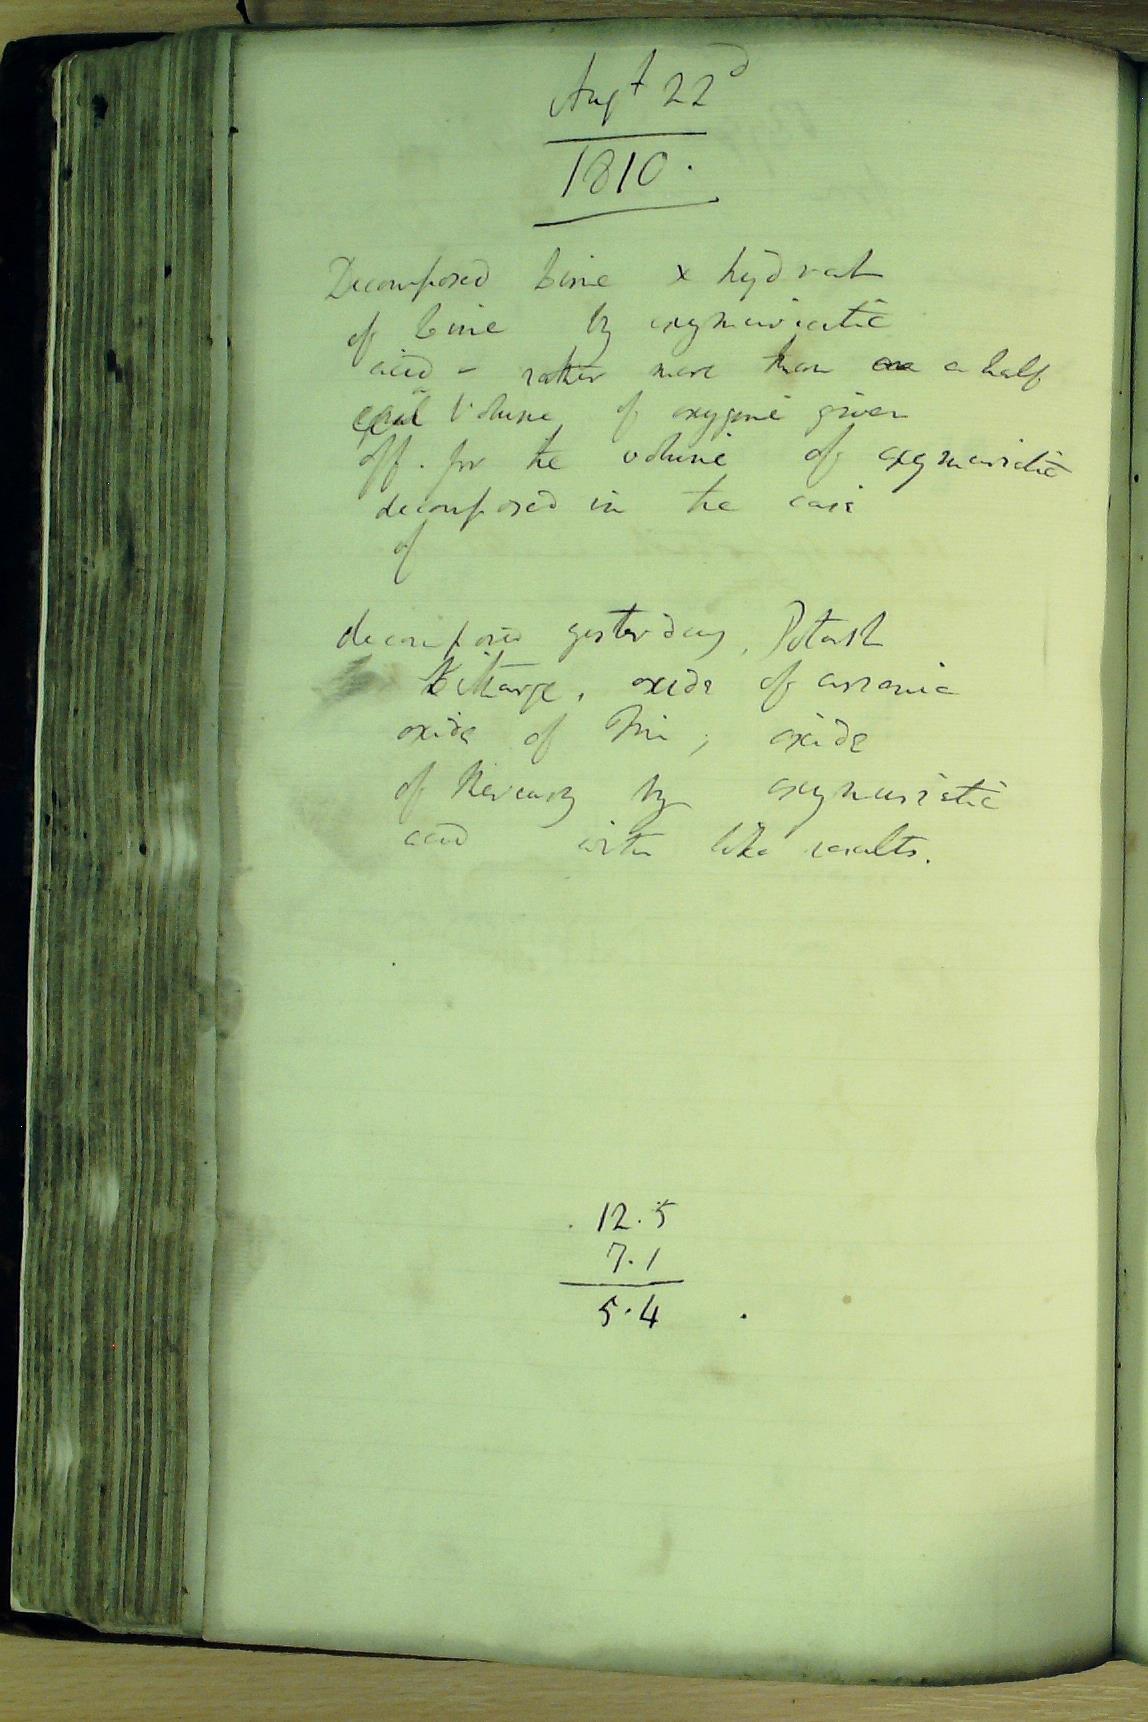 Augt 22d
1810.
Decomposed lime & hydrat
of lime by oxymuriatic
acid - rather more than a half
Volume of oxygene given
off. for the volume of oxymuriatic
decomposed in the case
of
decomposed yesterday, Potash
Litharge, oxide of arsenic
oxide of Tin; oxide
of Mercury by oxymuriatic
acid with like results.
12.5
7.1
5.4